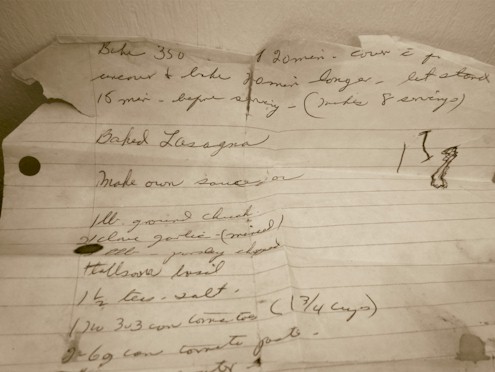 Bake 350 1 20 min - cover c
uncover & bake 20 min longer - let stand
15 min - before serving - (makes 8 servings)
Baked Lasagna
Make own sauce or
1 lb ground chuck
clove garlic - (minced)
parsley chopped
basil
1 1/2 tea - salt -
can tomatoes (1 3/4 cups)
2 - 6 oz can tomato paste -